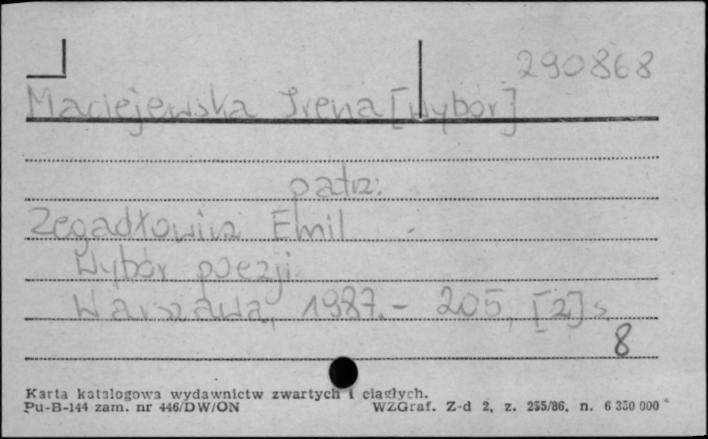 290868
Maciejewska Irena [Wybór]
patrz:
Zegadłowicz Emil
Wybór poezji.
Warszawa, 1987. - 205, [2] s.
8
Karta katalogowa wydawnictw zwartych i ciągłych.
Pu-B-144 zam. nr 446/DW/ON WZGraf. Z-d 2, z. 255/86, n. 6 350 000